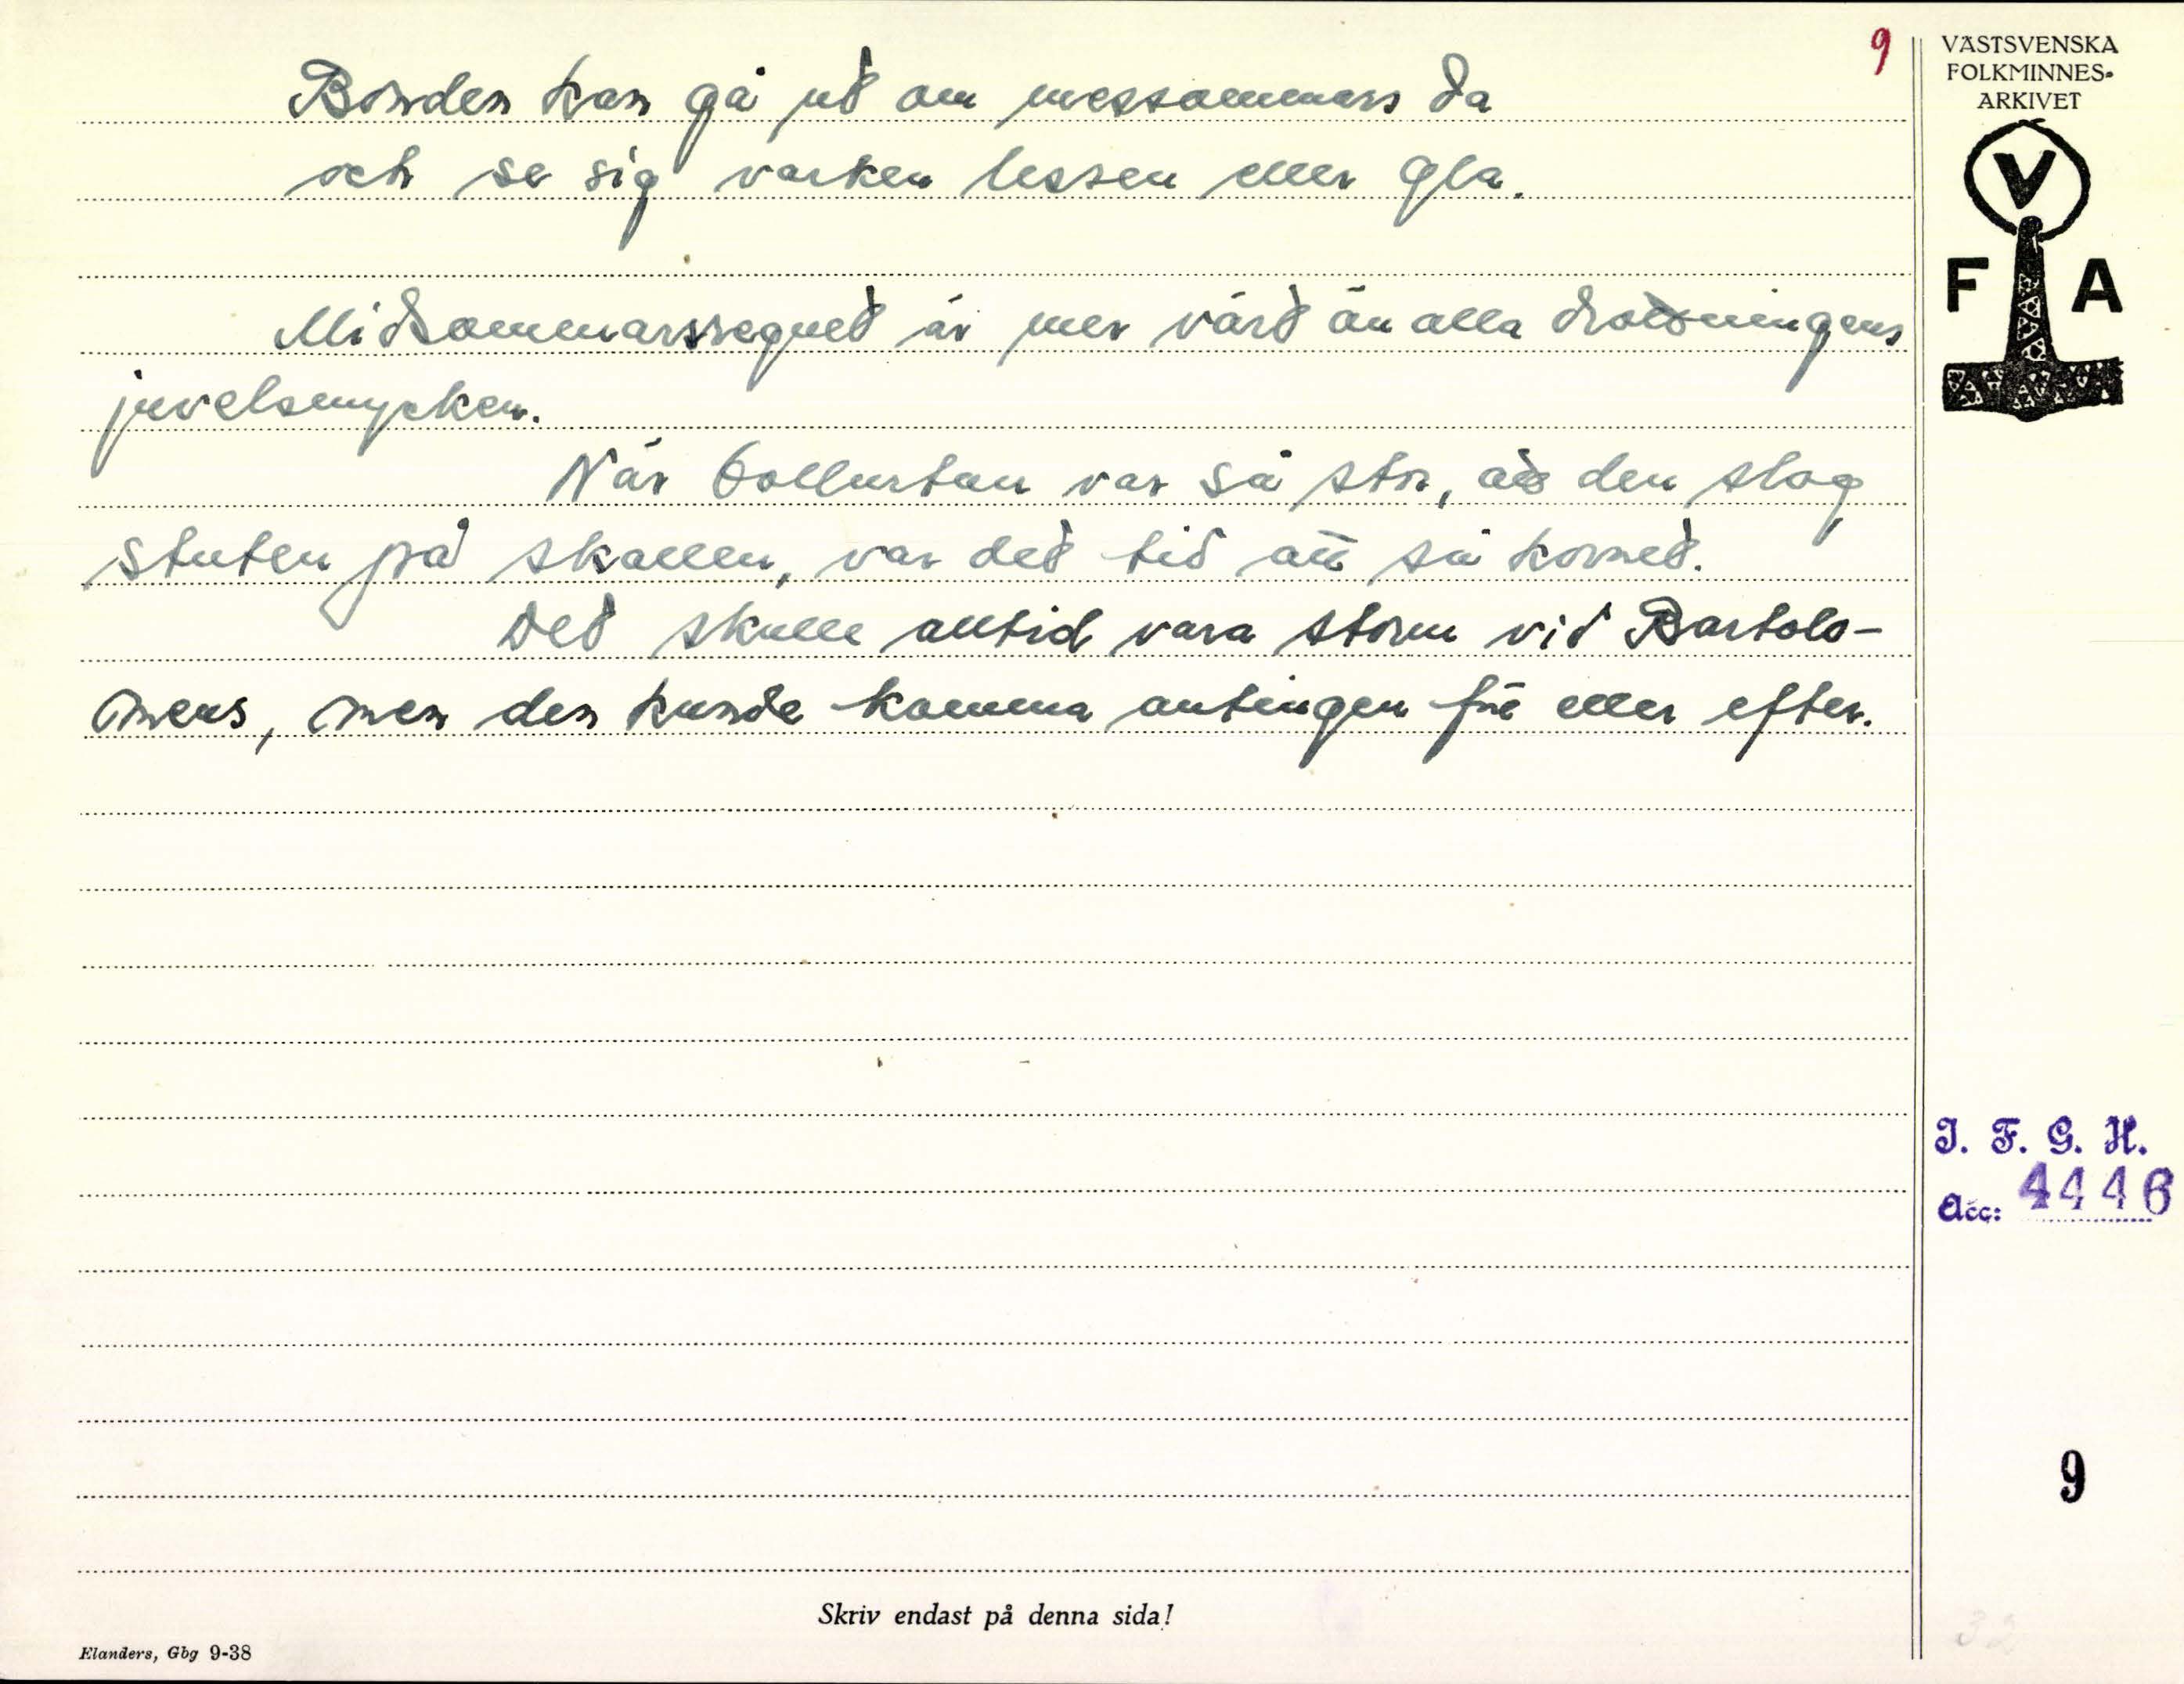 9
VÄSTSVENSKA
FOLKMINNES-
ARKIVET
V
F A
Bonden kan gå ut om messommars da
och se sig varken lessen eller gla.
Midsommarsregnet är mer värt än alla drottningens
juvelsmycken.
När bollurten var så stor, att den slog
stuten på skallen, var det tid att så kornet.
Det skulle alltid vara storm vid Bartolo-
meus, men den kunde komma antingen före eller efter.
I. F. G. H.
Acc: 4446
9
32
Skriv endast på denna sida!
Elanders, Gbg 9-38